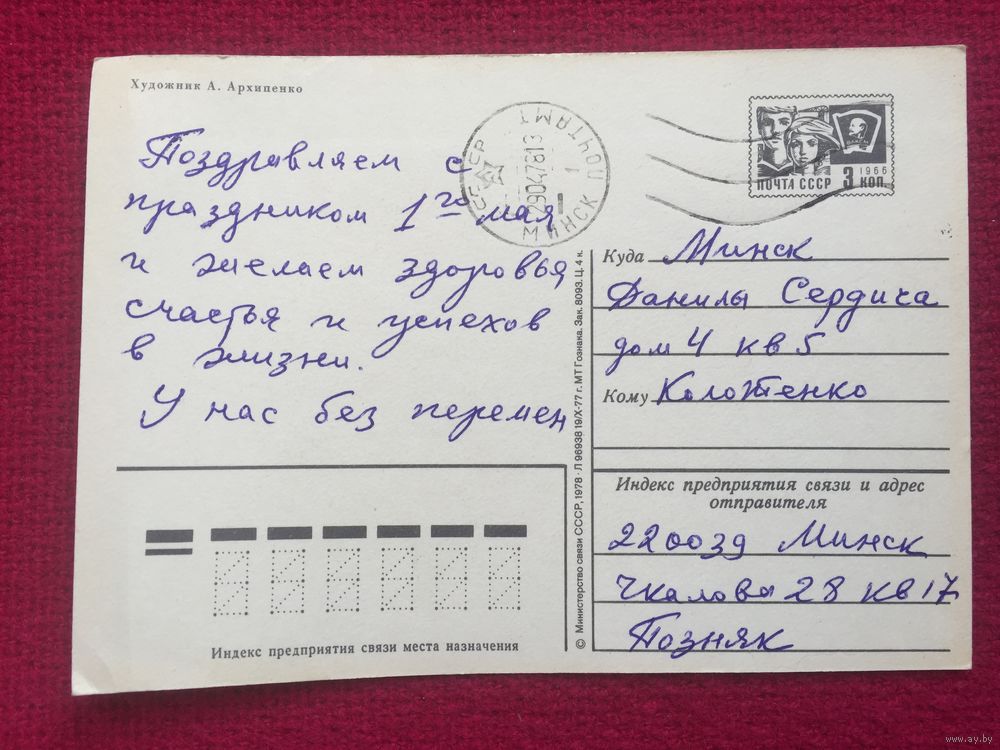 Художник А. Архипенко
Поздравляем с
праздником 1го мая
и желаем здоровья,
счастья и успехов
в жизни.
У нас без перемен
СССР
ПОЧТАМТ
29047813
1
МИНСК
ПОЧТА СССР
3 КОП
1966
Куда Минск
Данилы Сердича
дом 4 кв 5
Кому Колотенко
Индекс предприятия связи и адрес
отправителя
220039 Минск
Чкалова 28 кв 17
Позняк
Индекс предприятия связи места назначения
© Министерство связи СССР, 1978 · Л 9693819/X-77 г. МТ Гознака. Зак. 8093. Ц. 4 к.
www.ay.by